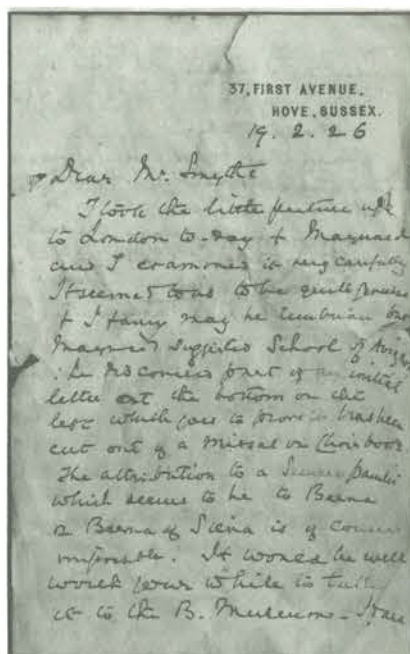 37, FIRST AVENUE,
HOVE, SUSSEX.
19. 2. 26
Dear Mr. Smythe
I took the little picture up
to London to-day & Maynard
and I examined it very carefully
It seemed to us to be quite genuine
& I fancy may be Umbrian
Maynard suggested School of
part of an initial
letter at the bottom on the
left which goes to prove it has been
cut out of a Missal or Choir book
The attribution to a Sienese painter
which seems to be to Barna
or Barna of Siena is of course
impossible. It would be well
worth your while to take
it to the B. Museum